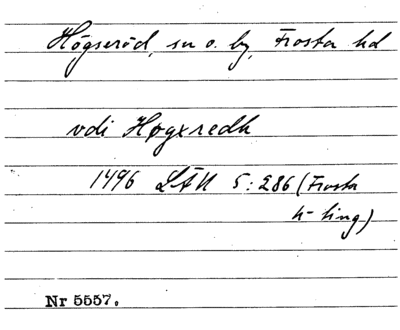 Högseröd, sn o. by, Frosta hd
vdi Høgxredh
1496 LÄU 5:286 (Frosta
h-ting)
Nr 5557.